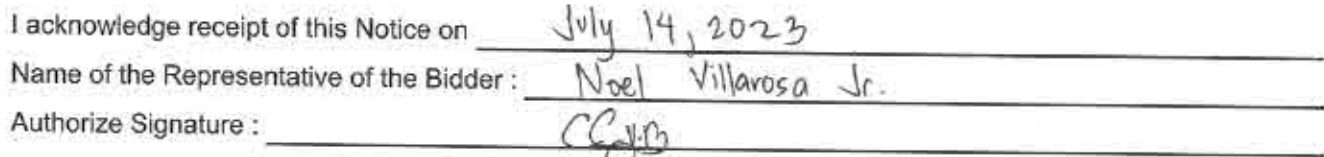 I acknowledge receipt of this Notice on July 14, 2023
Name of the Representative of the Bidder : Noel Villarosa Jr.
Authorize Signature :